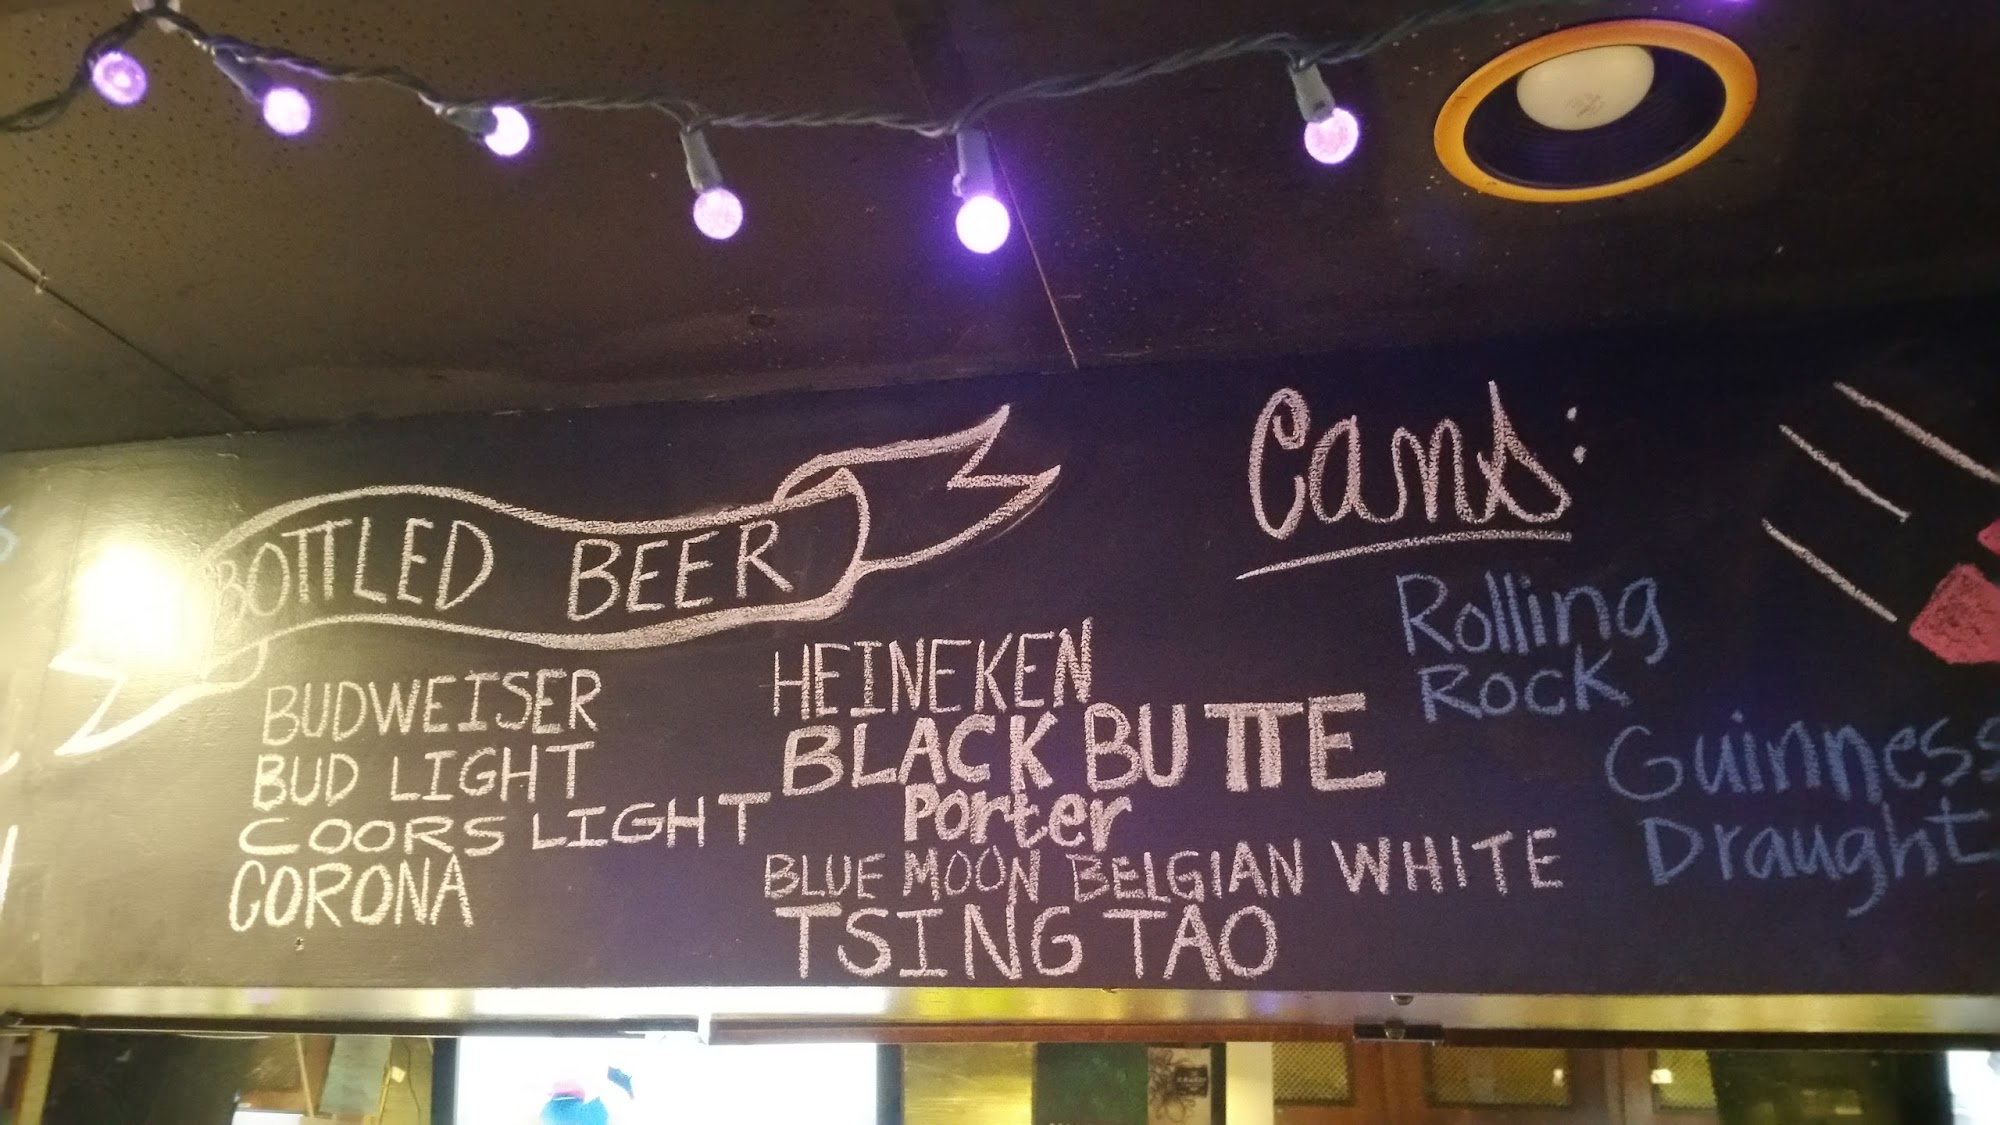 BOTTLED BEER
BUDWEISER
BUD LIGHT
COORS LIGHT
CORONA
HEINEKEN
BLACK BUTTE
Porter
BLUE MOON BELGIAN WHITE
TSING TAO
Cans:
Rolling
Rock
Guinness
Draught